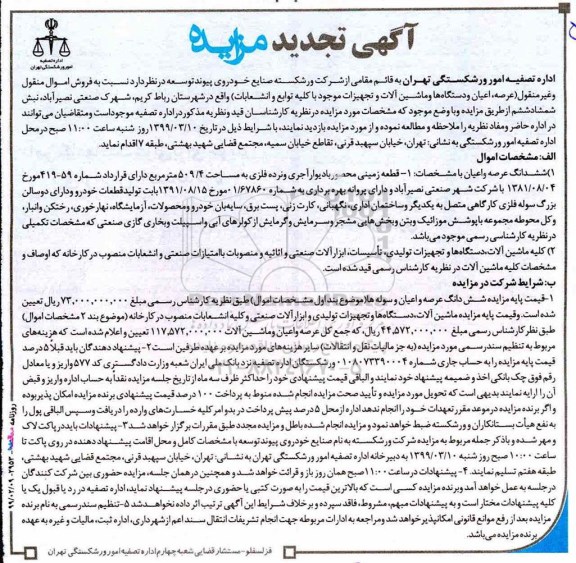 آگهی تجدید مزایده
اداره تصفیه
امور ورشکستگی تهران
اداره تصفیه امور ورشکستگی تهران به قائم مقامی از شرکت ورشکسته صنایع خودروی پیوند توسعه در نظر دارد نسبت به فروش اموال منقول
وغیر منقول(عرصه، اعیان ودستگاه‌ها وماشین آلات و تجهیزات موجود با کلیه توابع و انشعابات) واقع در شهرستان رباط کریم، شهرک صنعتی نصیرآباد، نبش
شمشاد ششم از طریق مزایده وبا وضع موجود که مشخصات مورد مزایده در نظریه کارشناسان قید ونظریه مذکور در اداره تصفیه موجود است ومتقاضیان می‌توانند
در اداره حاضر ومفاد نظریه را ملاحظه و مطالعه نموده و از مورد مزایده بازدید نمایند، با شرایط ذیل در تاریخ ۱۳۹۹/۰۳/۱۰ روز شنبه ساعت ۱۱:۰۰ صبح در محل
اداره تصفیه امور ورشکستگی به نشانی: تهران، خیابان سپهبد قرنی، تقاطع خیابان سمیه، مجتمع قضایی شهید بهشتی، طبقه ۷ اقدام نماید.
الف: مشخصات اموال
۱)ششدانگ عرصه واعیان با مشخصات: ۱-قطعه زمینی محصور با دیوار آجری ونرده فلزی به مساحت ۵۰۹/۴ مترمربع دارای قرارداد شماره ۴۱۹-۵۹ مورخ
۱۳۸۱/۰۸/۰۴ با شرکت شهر صنعتی نصیرآباد و دارای پروانه بهره برداری به شماره ۰۱/۶۷۸۶۰ مورخ ۱۳۹۱/۰۸/۱۵ بابت تولید قطعات خودرو و دارای دو سالن
بزرگ سوله فلزی کارگاهی متصل به یکدیگر وساختمان اداری، نگهبانی، کارت زنی، پست برق، سایه‌بان خودرو ومحصولات، آزمایشگاه، نهارخوری، رختکن وانبار،
وکل محوطه مجموعه با پوشش موزائیک وبتن وبخش‌هایی مشجر وسرمایش وگرمایش از کولرهای آبی واسپیلت وبخاری گازی صنعتی که مشخصات تکمیلی
در نظریه کارشناسی رسمی موجود می‌باشد.
۲) کلیه ماشین آلات،دستگاه‌ها و تجهیزات تولیدی، تأسیسات، ابزار آلات صنعتی و اثاثیه و منصوبات با امتیازات صنعتی و انشعابات منصوب در کارخانه که اوصاف و
مشخصات کلیه ماشین آلات در نظریه کارشناس رسمی قید شده است.
ب: شرایط شرکت در مزایده
۱-قیمت پایه مزایده شش دانگ عرصه واعیان و سوله ها(موضوع بند اول مشخصات اموال) طبق نظریه کارشناس رسمی مبلغ ۷۳,۰۰۰,۰۰۰,۰۰۰ ریال تعیین
شده است. وقیمت پایه مزایده ماشین آلات،دستگاه‌ها و تجهیزات تولیدی و ابزار آلات صنعتی و کلیه انشعابات منصوب در کارخانه (موضوع بند ۲ مشخصات اموال)
طبق نظر کارشناس رسمی مبلغ ۴۴,۵۷۲,۰۰۰,۰۰۰ ریال، که جمع کل عرصه واعیان وماشین آلات ۱۱۷,۵۷۲,۰۰۰,۰۰۰ تعیین و اعلام شده است که هزینه‌های
مربوط به تنظیم سند رسمی مورد مزایده (به جز مالیات نقل و انتقالات) سایر هزینه‌های مورد مزایده بر عهده طرفین است ۲- پیشنهاد دهندگان باید قبلاً ۵ درصد
قیمت پایه مزایده را به حساب جاری شماره ۰۱۰۸۰۷۳۳۹۰۰۰۴ ورشکستگان اداره تصفیه نزد بانک ملی ایران شعبه وزارت دادگستری کد ۵۷۷ واریز و یا معادل
رقم فوق چک بانکی اخذ و ضمیمه پیشنهاد خود نمایند و الباقی قیمت پیشنهادی خود را حداکثر ظرف سه ماه از تاریخ جلسه مزایده نقداً به حساب اداره واریز و قبض
آن را ارایه نمایند بدیهی است که تحویل مورد مزایده و تأیید صحت مزایده انجام شده منوط به پرداخت ۱۰۰ درصد قیمت پیشنهادی برنده مزایده امکان پذیر بوده
و اگر برنده مزایده در موعد مقرر تعهدات خود را انجام ندهد اداره از محل ۵ درصد پیش پرداخت در بدو امر کلیه خسارت‌های وارده را دریافت وسپس الباقی پول را
به نفع هیأت بستانکاران و ورشکسته ضبط خواهد نمود و مزایده انجام شده باطل و مزایده مجدد طبق مقررات برگزار خواهد شد ۳- پیشنهادات باید در پاکت لاک
و مهر شده و با ذکر جمله مربوط به مزایده شرکت ورشکسته به نام صنایع خودروی پیوند توسعه با مشخصات کامل و محل اقامت پیشنهاد دهنده در روی پاکت تا
ساعت ۱۰:۰۰ صبح روز شنبه ۱۳۹۹/۰۳/۱۰ به دبیرخانه اداره تصفیه امور ورشکستگی تهران به نشانی: تهران، خیابان سپهبد قرنی، مجتمع قضایی شهید بهشتی،
طبقه هفتم تسلیم نمایند. ۴- پیشنهادات در ساعت ۱۱:۰۰ صبح همان روز باز و قرائت خواهد شد و همچنین در همان جلسه، مزایده حضوری بین شرکت کنندگان
در جلسه به عمل خواهد آمد وبرنده مزایده کسی است که بالاترین قیمت را به صورت کتبی یا حضوری در جلسه پیشنهاد نماید، اداره تصفیه در رد یا قبول یک یا
کلیه پیشنهادات مختار است و به پیشنهادات مبهم، مشروط، فاقد سپرده و بر خلاف شرایط این آگهی ترتیب اثر داده نخواهد شد ۵-تنظیم سند رسمی به نام برنده
مزایده بعد از رفع موانع قانونی امکانپذیر خواهد شد ومراجعه به ادارات مربوطه جهت انجام تشریفات انتقال سند اعم از شهرداری، اداره ثبت، مالیات و غیره به عهده
برنده مزایده می‌باشد.
قزلسفلو-مستشار قضایی شعبه چهارم اداره تصفیه امور ورشکستگی تهران